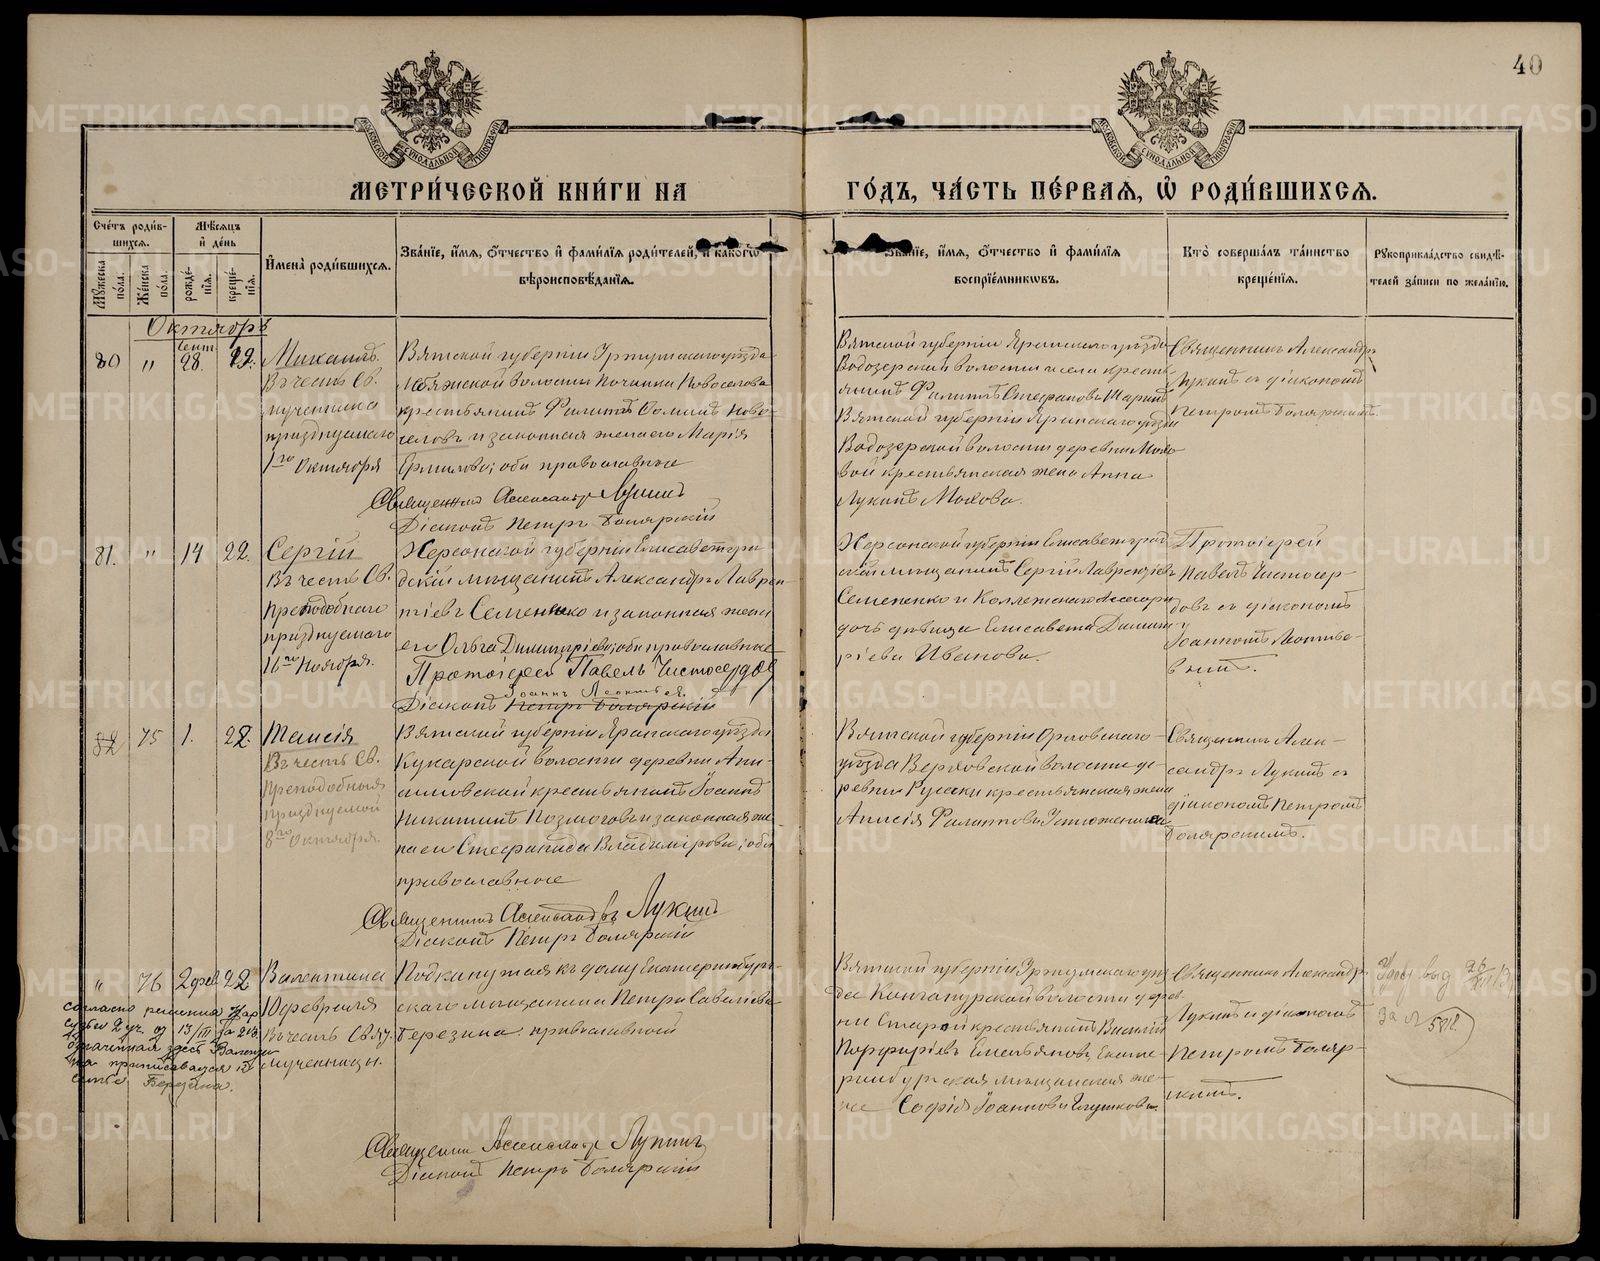 40
МОСКОВСКОЙ СѴНОДАЛЬНОЙ ТИПОГРАФІИ
МОСКОВСКОЙ СѴНОДАЛЬНОЙ ТИПОГРАФІИ
МЕТРИ́ЧЕСКОЙ КНИ́ГИ НА
ГО́ДЪ, ЧА́СТЬ ПЕ́РВАЯ, Ѡ҆ РОДИ́ВШИХСЯ.
Сче́тъ роди́в-
шихся.
Мѣ́сяцъ
и҆ де́нь
Мꙋ́жеска по́ла.
Же́нска по́ла.
рожде́-
нїя.
креще́-
нїя.
И҆мена̀ роди́вшихся.
Зва́нїе, и҆́мя, ѻ҆́тчество и҆ фами́лїя роди́телей, и҆ како́гѡ
вѣроисповѣ́данїя.
Зва́нїе, и҆́мя, ѻ҆́тчество и҆ фами́лїя
воспрїе́мникѡвъ.
Кто̀ соверша́лъ та́инство
креще́нїя.
Рꙋкоприкла́дство свидѣ́-
телей за́писи по жела́нїю.
Октябрь
80 " Сент 28. 22. Михаилъ.
Въ честь Св.
мученика
празднуемаго
1го Октября
Вятской губерніи Уржумскаго уѣзда
Лебяжской волости Починка Новоселова
крестьянинъ Филиппъ Ѳоминъ Ново-
селовъ и законная жена его Марія
Ермилова; оба православные
Священникъ Александръ Лукинъ
Діаконъ Петръ Боляркій
Вятской губерніи Яранскаго уѣзда
Водозерской волости и села кресть-
янинъ Филиппъ Стефановъ
Вятской губерніи Яранскаго уѣзда
Водозерской волости деревни Мохо-
вой крестьянская жена Анна
Мохова.
Священникъ Александръ
Лукинъ съ діакономъ
Петромъ Боляркимъ.
81. " 14 22. Сергій
Въ честь Св.
Преподобнаго
празднуемаго
16го Ноября.
Херсонской губерніи Елисаветгра-
дскій мѣщанинъ Александръ Лаврен-
тіевъ Семененко и законная жена
его Ольга Димитріева; оба православные
Протоіерей Павелъ Чистосердовъ
Діаконъ Іоаннъ Леонтьев
Петръ Боляркій
Херсонской губерніи Елисаветград-
скій мѣщанинъ Сергій Лаврентіевъ
Семененко и Коллежскаго Ассесора
дочь дѣвица Елисавета Димит-
ріева Иванова.
Протоіерей
Павелъ Чистосер-
довъ съ діакономъ
Іоанномъ Леонтье-
вымъ.
82 75 1. 22. Таисія
Въ честь Св.
Преподобныя
празднуемой
8го Октября.
Вятской губерніи Яранскаго уѣзда
Кукарской волости деревни Ани-
симовской крестьянинъ Іоаннъ
Никитинъ и законная же-
на его Стефанида Владимірова; оба
православные
Священникъ Александръ Лукинъ
Діаконъ Петръ Боляркій
Вятской губерніи Орловскаго
уѣзда Верховской волости де-
ревни Русски крестьянская жена
Анисія Филиппова Устюжанина
Священникъ Алек-
сандръ Лукинъ съ
діакономъ Петромъ
Боляркимъ.
" 76 2 фев 22 Валентина
10 февраля
Въ честь Св.
мученицы.
согласно решения Нар
судьи 2 уч. от 13/III
означенная здесь Вален-
тина приписывается к
семье Березина.
Подкинутая къ дому Екатеринбург-
скаго мѣщанина Петра Савельева
Березина, православной
Священникъ Александръ Лукинъ
Діаконъ Петръ Боляркій
Вятской губерніи Уржумскаго уѣз-
да Кончанурской волости дерев-
ни Старой крестьянинъ Василій
Порфиріевъ Емельяновъ, Екате-
ринбургская мѣщанская же-
на Софія Іоаннова Глушкова.
Священникъ Александръ
Лукинъ и діаконъ
Петромъ Боляр-
кимъ.
выд
за №